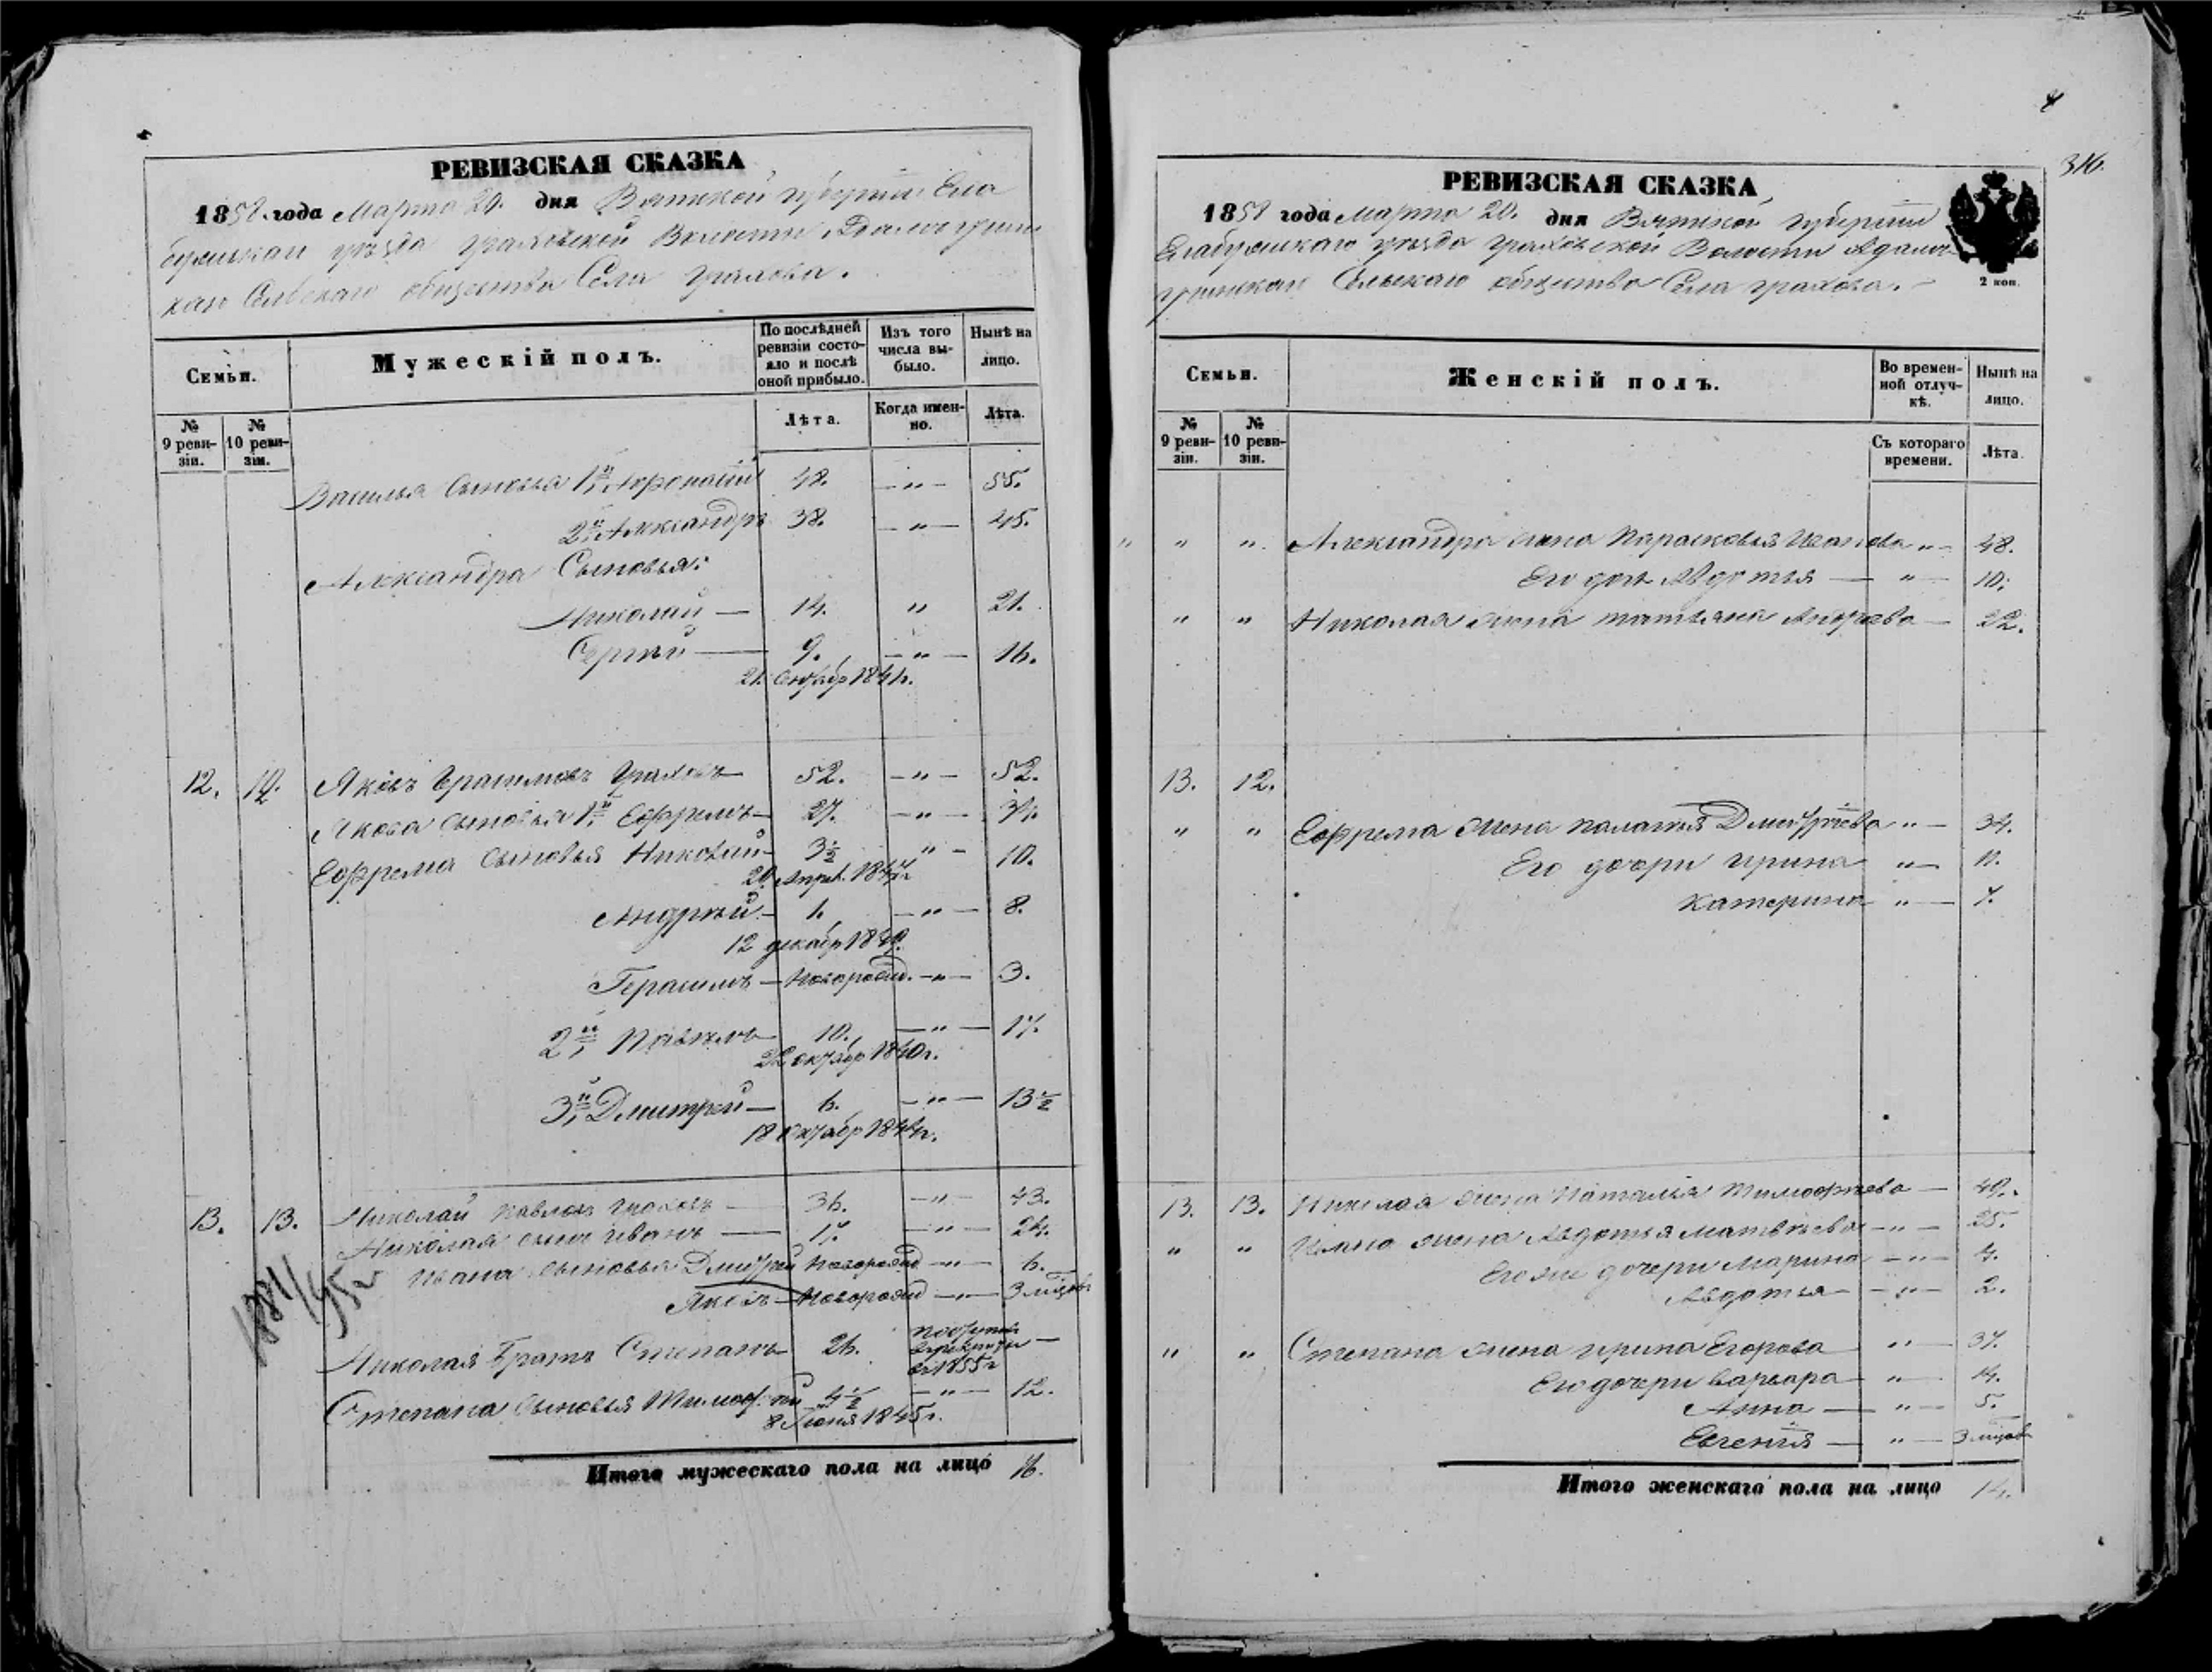 316.
РЕВИЗСКАЯ СКАЗКА
1858. года Марта 20. дня Вятской губернии Ела
бужскаго уѣзда Граховской Волости
Сельскаго общества Села Грахова.
Семьи.
Мужескій полъ.
По послѣдней ревизіи состояло и послѣ оной прибыло.
Изъ того числа выбыло.
Нынѣ на лицо.
№ 9 ревизіи.
№ 10 ревизіи.
Лѣта.
Когда именно.
Лѣта.
Василья Сыновья 1й 48. —"— 55.
2й Александръ 38. —"— 45.
Александра Сыновья:
Николай — 14. " 21.
Сергѣй — 9. —"— 16.
12. 12. Яковъ Герасимовъ Граховъ 52. —"— 52.
Якова Сыновья 1й Ефремъ — 27. —"— 34.
Ефрема Сыновья Николай — 3½ " — 10.
20 Апрѣл. 1847 г
Андрей — 1. —"— 8.
12 декабр
Герасимъ — Новорожд. —"— 3.
2й Павелъ 10. —"— 17.
22 октябр 1840 г.
3й Дмитрей — 6. —"— 13½
18 Октябр 1844 г.
13. 13. Николай Павловъ Граховъ — 36. —"— 43.
Николая сынъ Иванъ — 17. —"— 24.
Ивана Сыновья Дмитрей Новорожд —"— 6.
Яковъ — Новорожд —"— 3 мѣсяц
Николая Братъ Степанъ 26. въ рекруты въ 1855 г —
Степана Сыновья Тимоѳ.ѣй 4½ —"— 12.
8 Июня 1845 г.
Итого мужескаго пола на лицо 16.
РЕВИЗСКАЯ СКАЗКА
1858 года Марта 20. дня Вятской губернии
Елабужскаго уѣзда Граховской Волости
Сельскаго общества Села Грахова.
2 коп.
Семьи.
Женскій полъ.
Во временной отлучкѣ.
Нынѣ на лицо.
№ 9 ревизіи.
№ 10 ревизіи.
Съ котораго времени.
Лѣта.
" " " Александра жена Парасковья Иванова " — 48.
Его дочь Авдотья — " — 10.
" " Николая жена Татьяна Андреева — 22.
13. 12.
" " Ефрема жена Палагья Дмитріева " — 34.
Его дочери Ирина " — 11.
Катерина " — 7.
13. 13. Николая жена Наталья Тимофѣева — 49.
" " Ивана жена Авдотья Матвѣева —"— 25.
Его же дочери Марина —"— 4.
Авдотья —"— 2.
" " Степана жена Ирина Егорова " — 37.
Его дочери Варвара — " — 14.
Анна — " — 5.
Евгенія — " — 3 мѣсяц
Итого женскаго пола на лицо 14.